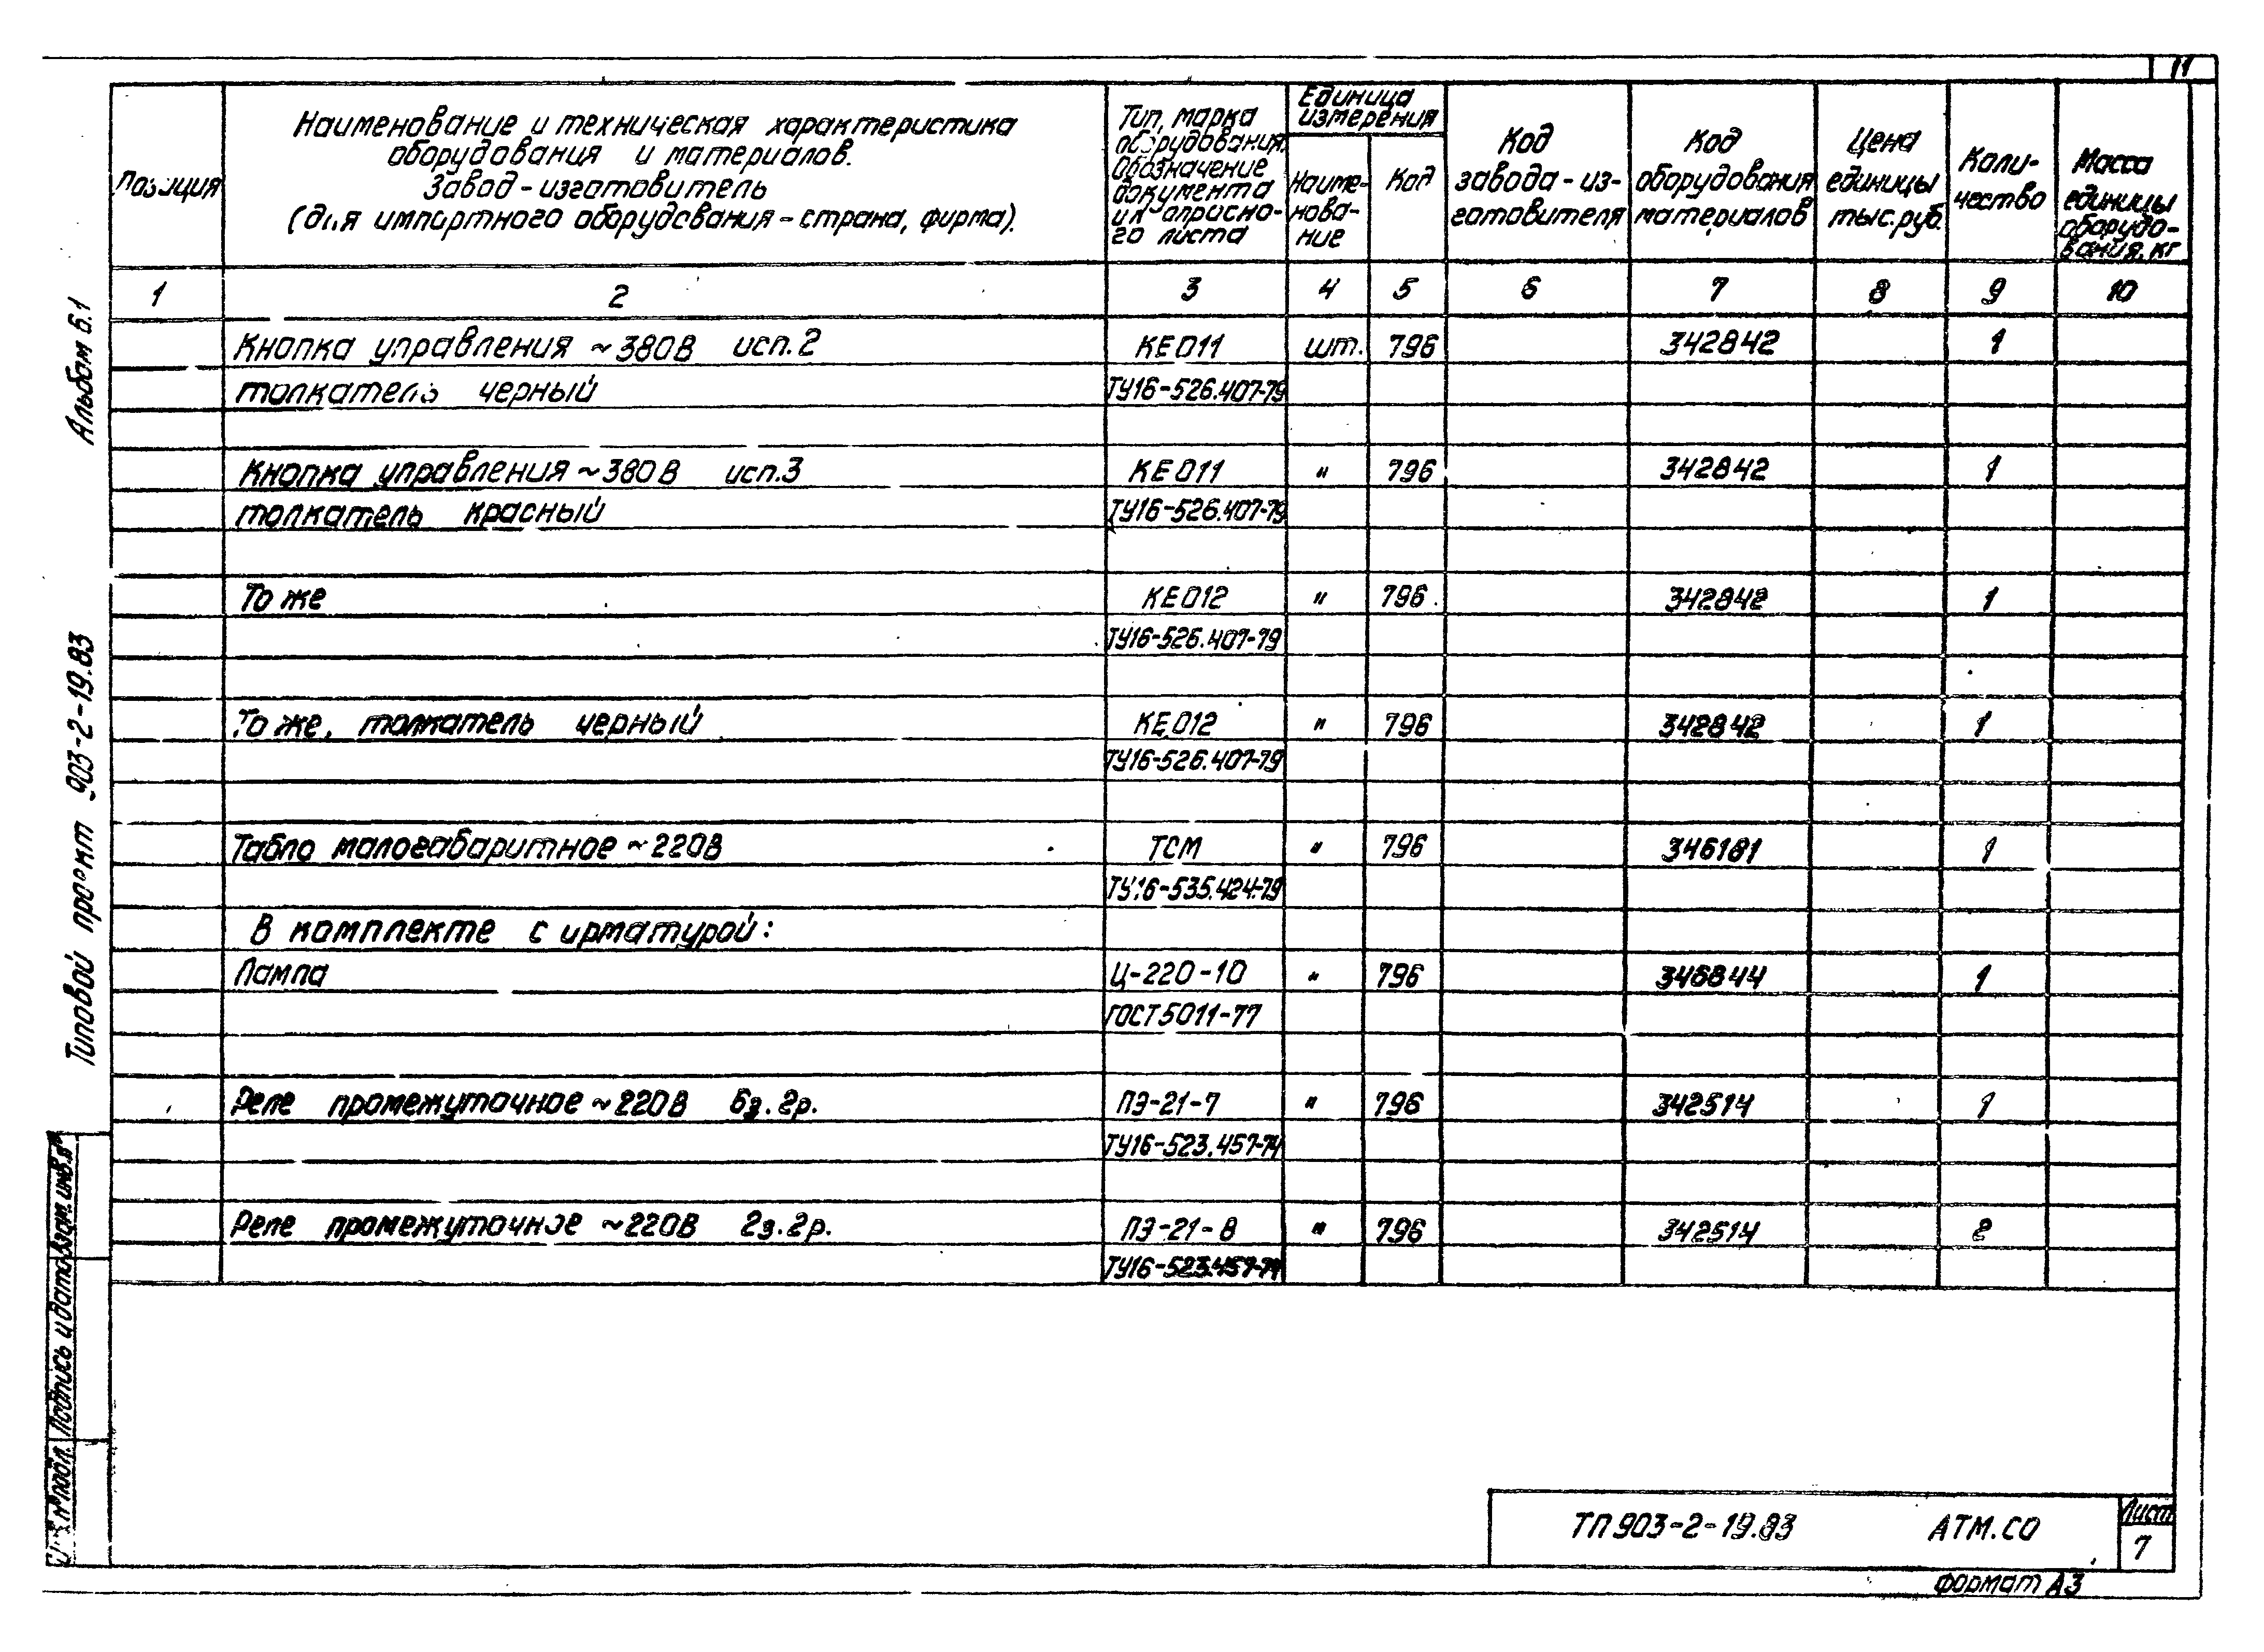 11
Позиция
Наименование и техническая характеристика
оборудования и материалов.
Завод-изготовитель
(для импортного оборудования - страна, фирма).
Тип, марка
оборудования.
Обозначение
документа
и № опросно-
го листа
Единица
измерения
Наиме-
нова-
ние
Код
Код
завода-из-
готовителя
Код
оборудования
материалов
Цена
единицы
тыс.руб.
Коли-
чество
Масса
единицы
оборудо-
вания, кг
1 2 3 4 5 6 7 8 9 10
Кнопка управления ~380В исп.2 КЕ011 шт. 796 342842 1
толкатель черный ТУ16-526.407-79
Кнопка управления ~380В исп.3 КЕ011 " 796 342842 1
толкатель красный ТУ16-526.407-79
То же КЕ012 " 796 342842 1
ТУ16-526.407-79
То же, толкатель черный КЕ012 " 796 342842 1
ТУ16-526.407-79
Табло малогабаритное ~220В ТСМ " 796 346181 1
ТУ16-535.424-79
В комплекте с арматурой:
Лампа Ц-220-10 " 796 346844 1
ГОСТ 5011-77
Реле промежуточное ~220В 6з.2р. ПЭ-21-7 " 796 342514 1
ТУ16-523.457-74
Реле промежуточное ~220В 2з.2р. ПЭ-21-8 " 796 342514 2
ТУ16-523.457-74
Альбом 6.1
Типовой проект 903-2-19.83
Взам. инв.№
Подпись и дата
Инв.№ подл.
ТП 903-2-19.83 АТМ.СО
Лист
7
Формат А3